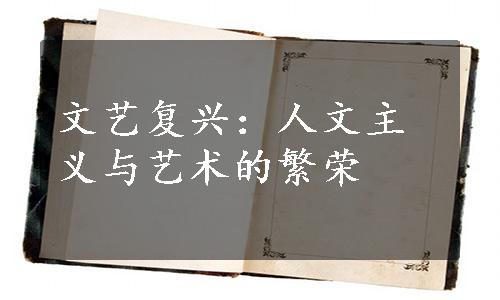 文艺复兴：人文主
义与艺术的繁荣